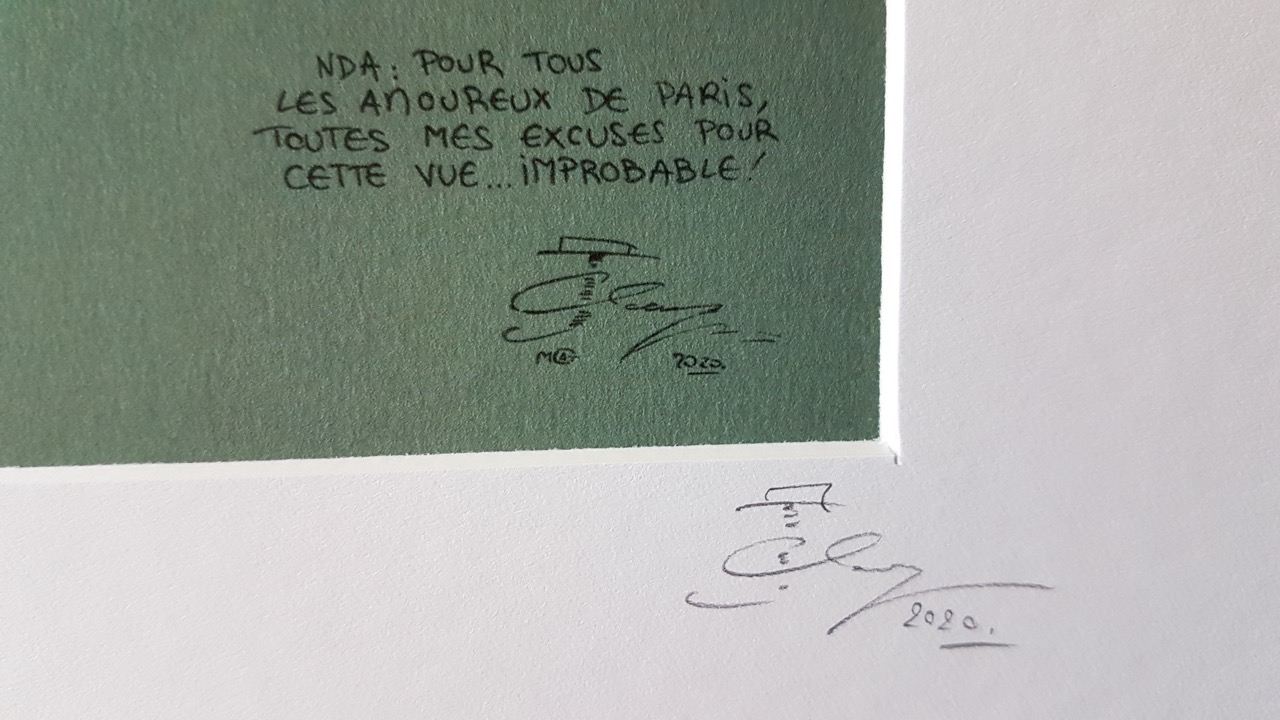 NDA: POUR TOUS
LES AMOUREUX DE PARIS,
TOUTES MES EXCUSES POUR
CETTE VUE... IMPROBABLE!
2020.
2020.